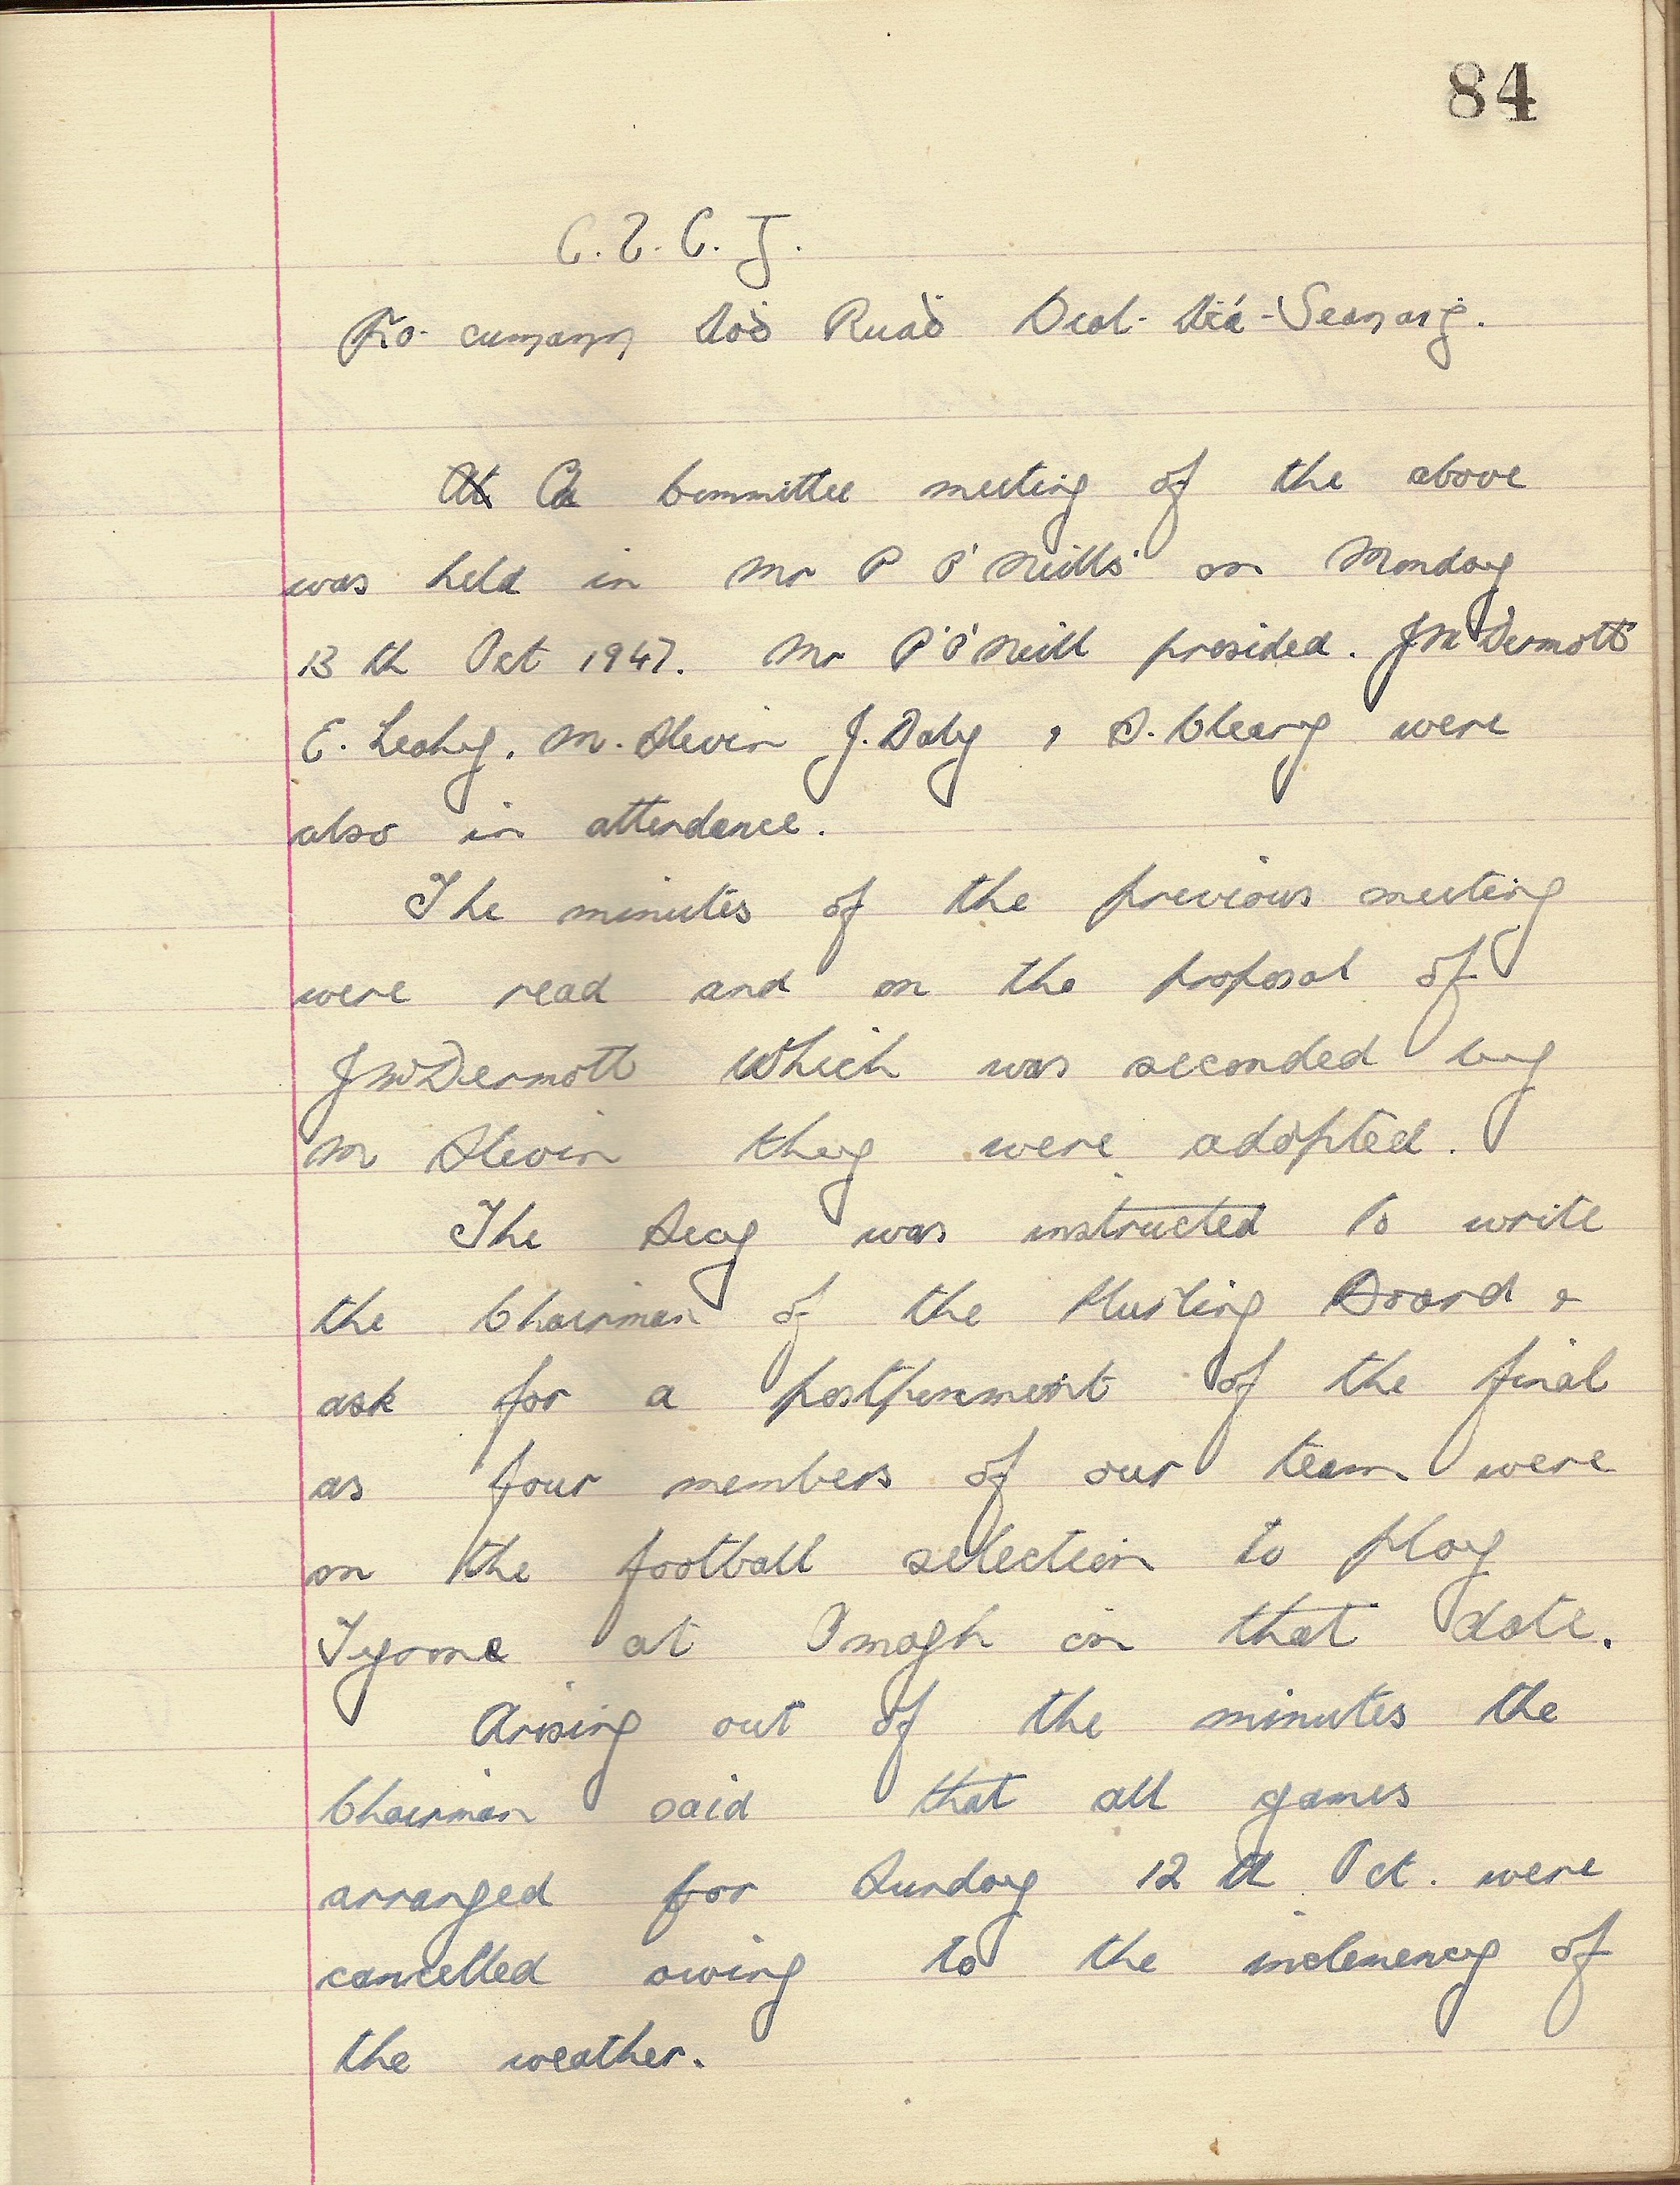 84
C. L. C. G.
Fo-cumann Aoḋ Ruaḋ Béal-Áṫa-Seanaiġ.
At A Committee meeting of the above
was held in Mr P O'Neill's on Monday
13 th Oct 1947. Mr P O'Neill presided. J McDermott
E. Leahy, M. Slevin J. Daly & S. Cleary were
also in attendance.
The minutes of the previous meeting
were read and on the proposal of
J McDermott which was seconded by
M Slevin they were adopted.
The Secy was instructed to write
the Chairman of the Hurling Board &
ask for a postponement of the final
as four members of our team were
on the football selection to play
Tyrone at Omagh on that date.
Arising out of the minutes the
Chairman said that all games
arranged for Sunday 12 th Oct. were
cancelled owing to the inclemency of
the weather.